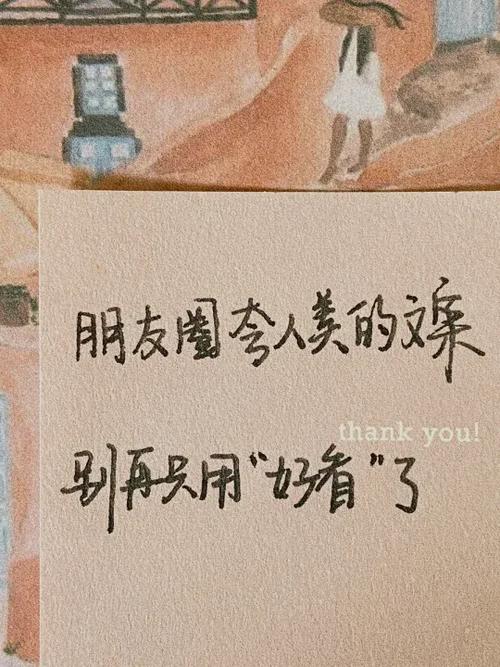 朋友圈夸人美的文案
thank you!
别再只用“好看”了